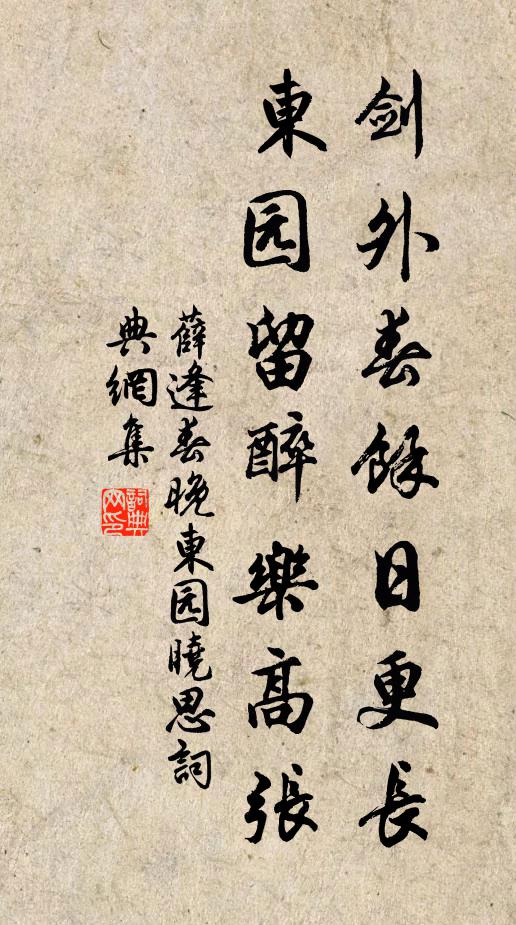 剑外春餘日更長
東园留醉樂高張
薛逢春晚東园曉思詞
典網集
詞典网印